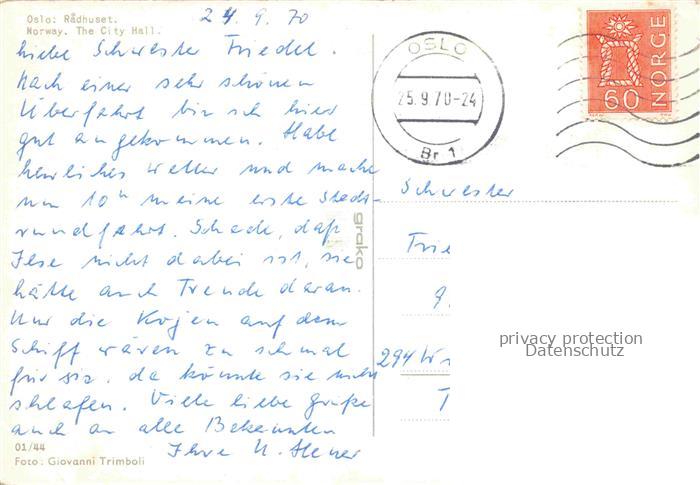 Oslo: Rådhuset.
Norway. The City Hall.
24.9.70
Liebe Schwester Friedel.
Nach einer sehr schönen
Überfahrt bin ich hier
gut angekommen. Habe
herrliches Wetter und mache
um 10h meine erste Stadt-
rundfahrt. Schade, daß
Ilse nicht dabei ist, sie
hätte auch Freude daran.
Nur die Kojen auf dem
Schiff wären zu schmal
für sie. da könnte sie nicht
schlafen. Viele liebe Grüße
auch an alle Bekannten
Ihre H.
01/44
Foto: Giovanni Trimboli
grako
OSLO
25.9.70-24
Br 1
NORGE
60
Schwester
Frie
294 W
privacy protection
Datenschutz